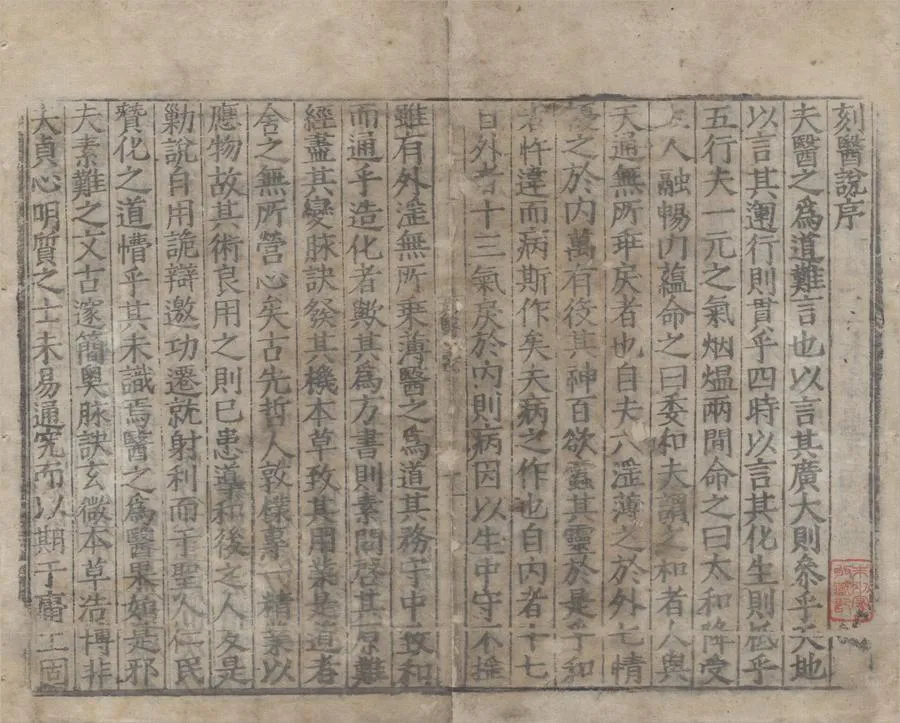 刻醫說序
夫醫之爲道難言也以言其廣大則叅乎天地
以言其運行則貫乎四時以言其化生則秪乎
五行夫一元之氣烟熅兩間命之曰太和降受
人融暢內蘊命之曰委和夫謂之和者人與
天通無所乖戾者也自夫六滛薄之於外七情
之於內萬有役其神百欲蠹其靈於是乎和
者忤違而病斯作矣夫病之作也自內者十七
自外者十三氣戾於內則病因以生中守不搖
雖有外滛無所乗薄醫之爲道其務于中致和
而通乎造化者歟其爲方書則素問啓其原難
經盡其變脉訣發其機本草致其用業是道者
舍之無所營心矣古先哲人敦樸專一精業以
應物故其術良用之則已患導和後之人反是
勦說自用詭辯邀功遷就射利而于聖人仁民
贊化之道懵乎其未識焉醫之爲醫果如是邪
夫素難之文古邃簡奧脉訣玄微本草浩博非
大貞心明質之士未易通究而以期于庸工固